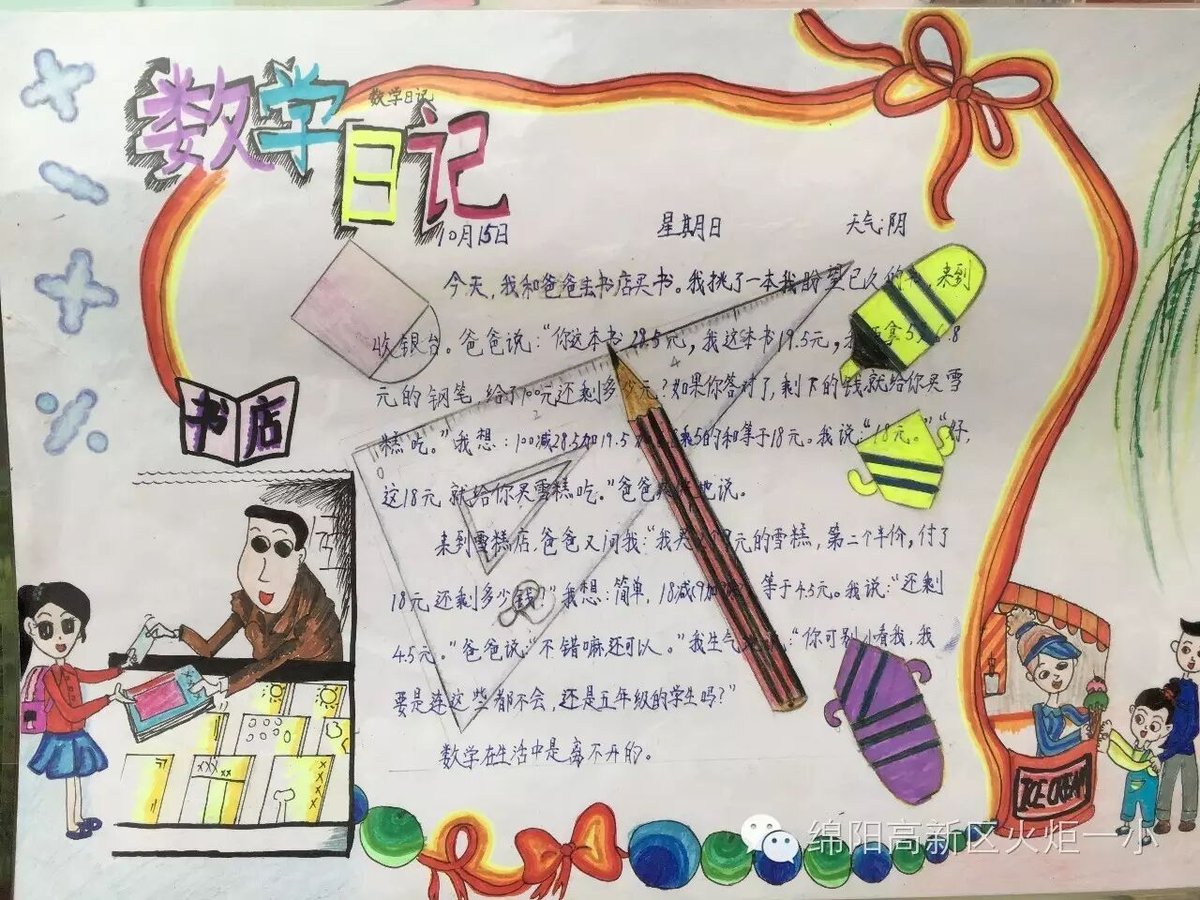 数学
数学日记
日记
10月15日 星期日 天气:阴
今天,我和爸爸去书店买书。我挑了一本我盼望已久的 来到
收银台。爸爸说:“你这本书28.5元,我这本书19.5元, 拿5 6.8
元的钢笔,给了100元还剩多少元?如果你答对了,剩下的钱就给你买雪
糕吃。”我想:100减28.5加19.5 乘5的和等于18元。我说:“18元。”“好,
这18元就给你买雪糕吃。”爸爸 地说。
来到雪糕店,爸爸又问我:“我买 9元的雪糕,第二个半价,付了
18元还剩多少钱?”我想:简单,18减9加 等于4.5元。我说:“还剩
4.5元。”爸爸说:“不错嘛,还可以。”我生气 说:“你可别小看我,我
要是连这些都不会,还是五年级的学生吗?”
数学在生活中是离不开的。
书店
ICE CREAM
绵阳高新区火炬一小